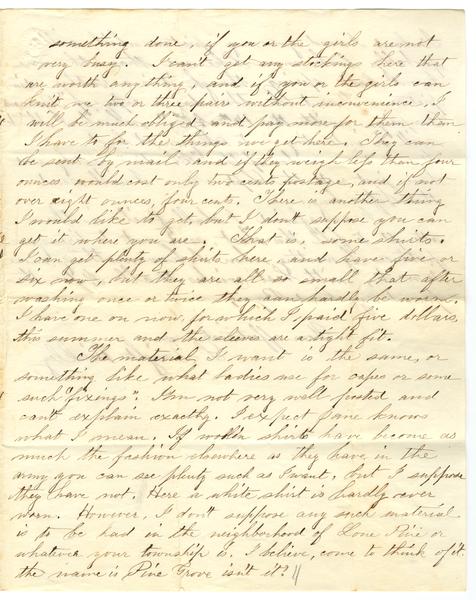 something done, if you or the girls are not
very busy. I can't get any stockings here that
are worth anything, and if you or the girls can
knit me two or three pairs without inconvenience, I
will be much obliged and pay more for them than
I have to for the things we get here. They can
be sent by mail and if they weigh less than four
ounces would cost only two cents postage, and if not
over eight ounces, four cents. There is another thing
I would like to get, but I don't suppose you can
get it where you are. That is, some shirts.
I can get plenty of shirts here, and have five or
six now, but they are all so small that after
washing once or twice they can hardly be worn.
I have one on now, for which I paid five dollars,
this summer and the sleeves are a tight fit.
The material I want is the same, or
something like what ladies use for capes or some
such "fixings". I'm not very well posted and
can't explain exactly. I expect Jane knows
what I mean. If woolen shirts have become as
much the fashion elsewhere as they have in the
army you can see plenty such as I want, but I suppose
they have not. Here a white shirt is hardly ever
worn. However, I don't suppose any such material
is to be had in the neighborhood of Lone Pine or
whatever your township is. I believe, come to think of it
the name is Pine Grove isn't it?